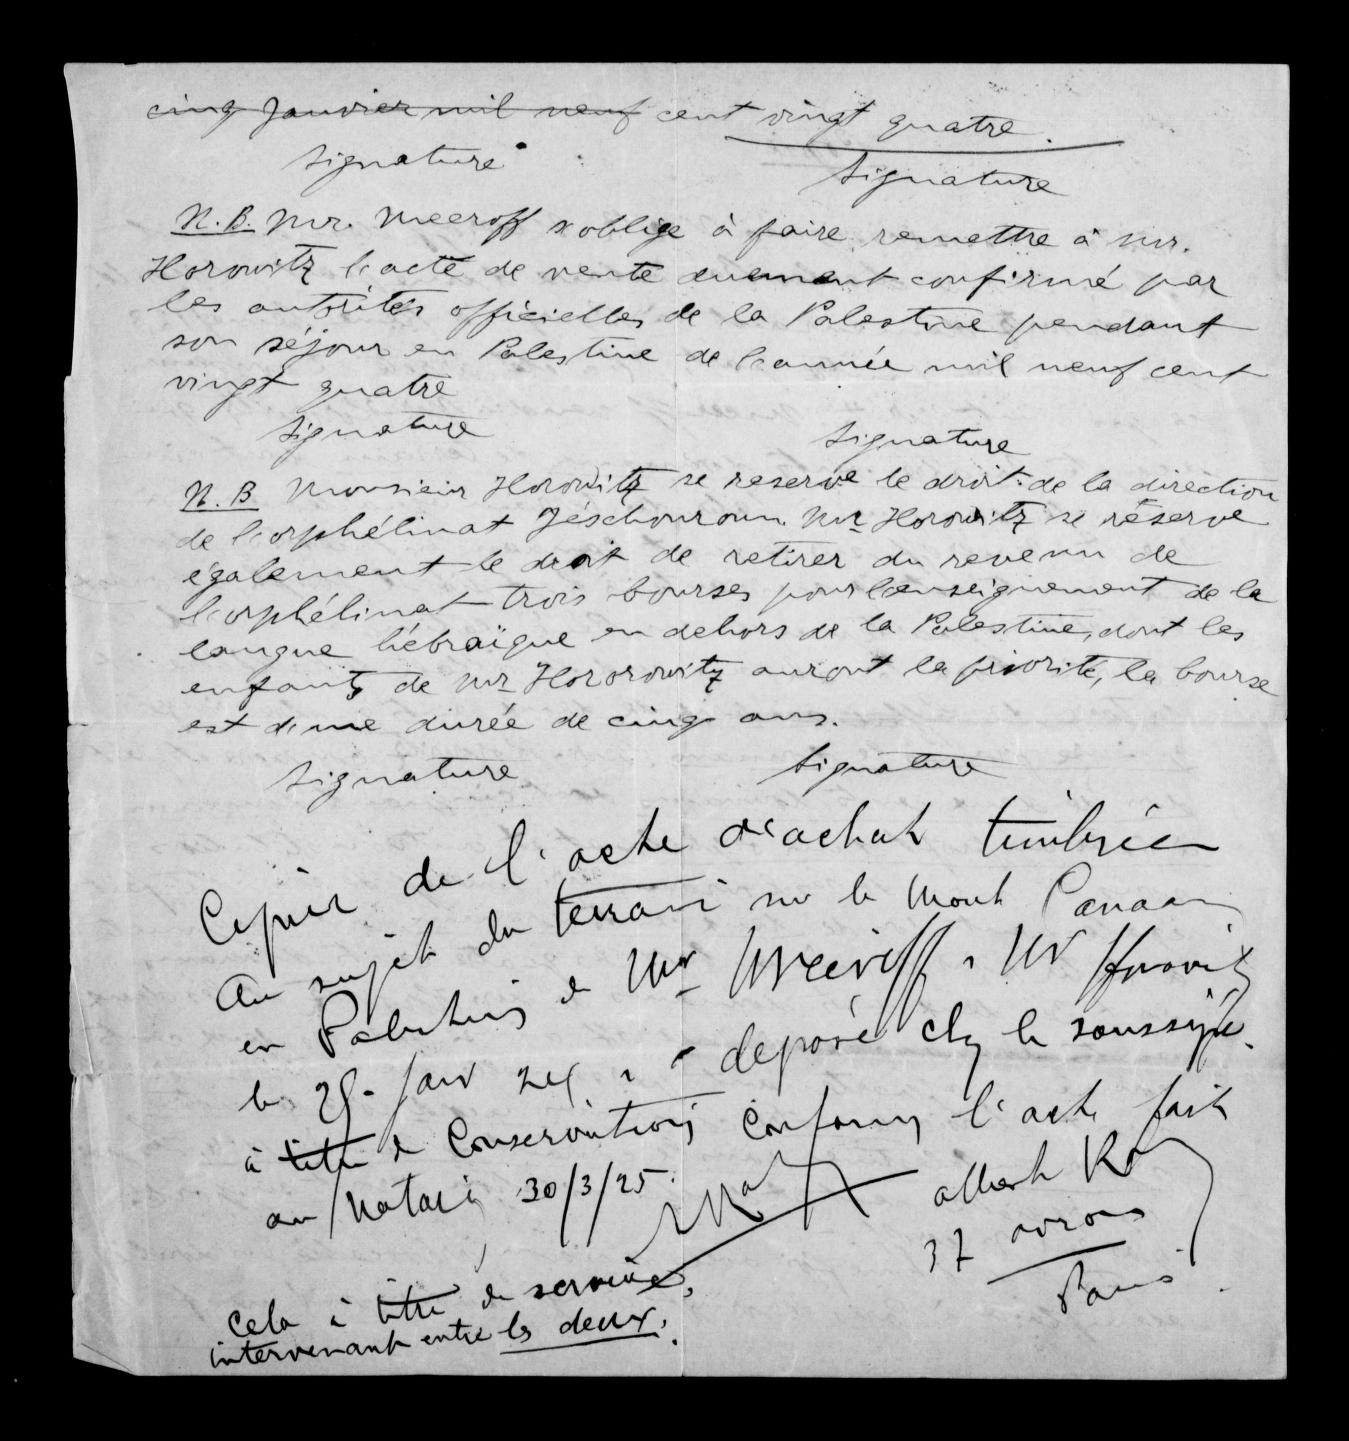 cinq Janvier mil neuf cent vingt quatre.
Signature Signature
N.B. Mr. Meeroff s'oblige à faire remettre à mr.
Horowitz l'acte de vente duement confirmé par
les autorités officielles de la Palestine pendant
son séjour en Palestine de l'année mil neuf cent
vingt quatre
Signature Signature
N.B Monsieur Horowitz se reserve le droit de la direction
de l'orphélinat Jéschouroun. Mr Horowitz se réserve
également le droit de retirer du revenu de
l'orphélinat trois bourses pour l'enseignement de la
langue hébraïque en dehors de la Palestine, dont les
enfants de Mr Hororowitz auront la priorité, la bourse
est d'une durée de cinq ans.
Signature Signature
Copie de l'acte d'achat timbrée
au sujet du terrain sur le Mont Canaan
en Palestine de Mr Meeroff à Mr Horovitz
le 25. Janv 24 a depose chez le soussigné
à titre de Conservation Conforme l'acte fait
au Notaire 30/3/25.
Albert
37
Paris
Cela à titre de service,
intervenant entre les deux.